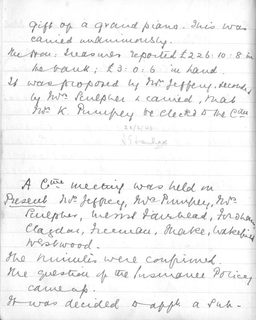 gift of a grand piano. This was
carried unanimously.
The Hon. Treasurer reported £226:10:8 in
the bank; £3:0:6 in hand.
It was proposed by Mrs Jeffery, seconded
by Mrs Sculpher & carried, that
Mrs K. Pumphey be elected to the Cttee
A Cttee meeting was held on
Present Mrs Jeffrey, Mrs Pumphey, Mrs
Sculpher, Fairhead, Fordham,
Claydon, Freeman, Thake, Wakefield
Westwood.
The minutes were confirmed.
The question of the Insurance Policy
came up.
It was decided to appt. a Sub-